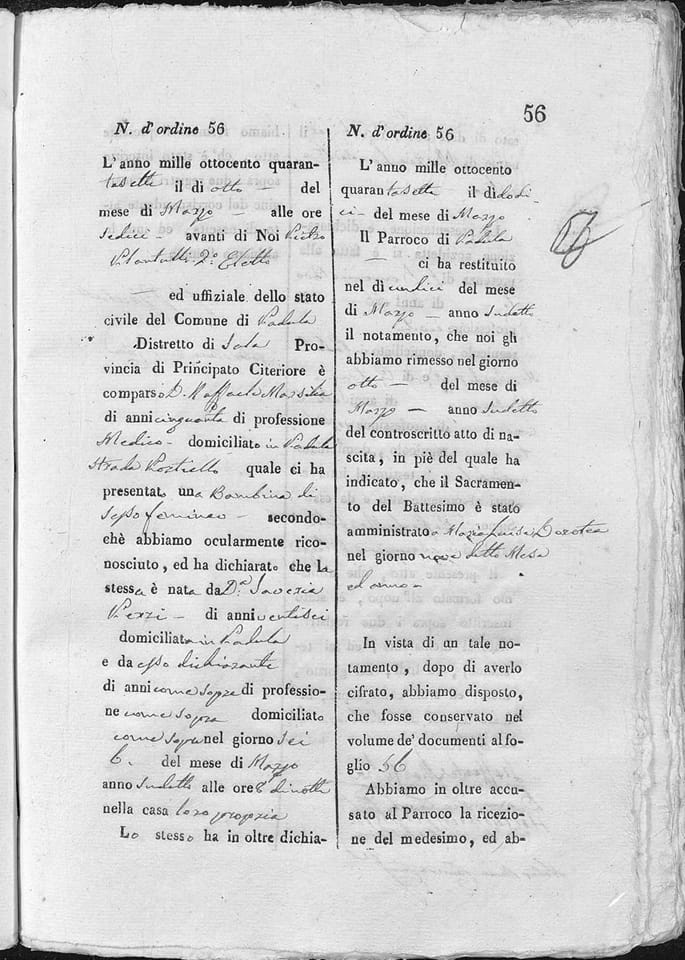 56
N. d'ordine 56
L'anno mille ottocento quaran-
tasette il di otto — del
mese di Marzo — alle ore
sedici — avanti di Noi Pietro
2.° Eletto
— ed uffiziale dello stato
civile del Comune di Padula
Distretto di Sala Pro-
vincia di Principato Citeriore è
comparso D. Raffaele Marsilia
di anni cinquanta di professione
Medico - domiciliato in Padula
Strada Portiello quale ci ha
presentato una Bambina di
sesso femineo — secondo-
chè abbiamo ocularmente rico-
nosciuto, ed ha dichiarato che la
stessa è nata da D.a Saveria
- di anni ventisei
domiciliata in Padula
e da esso dichiarante
di anni come sopra di professio-
ne come sopra domiciliato
come sopra nel giorno sei
6. del mese di Marzo
anno sudetto alle ore 8 di notte
nella casa loro propria
Lo stesso ha in oltre dichia-
N. d'ordine 56
L'anno mille ottocento
quarantasette il di dodi-
ci - del mese di Marzo
Il Parroco di Padula
ci ha restituito
nel dì undici del mese
di Marzo — anno sudetto
il notamento, che noi gli
abbiamo rimesso nel giorno
otto — del mese di
Marzo — anno sudetto
del controscritto atto di na-
scita, in piè del quale ha
indicato, che il Sacramen-
to del Battesimo è stato
amministrato a Maria Luisa Dorotea
nel giorno nove detto Mese
ed anno -
In vista di un tale no-
tamento, dopo di averlo
cifrato, abbiamo disposto,
che fosse conservato nel
volume de' documenti al fo-
glio 56
Abbiamo in oltre accu-
sato al Parroco la ricezio-
ne del medesimo, ed ab-